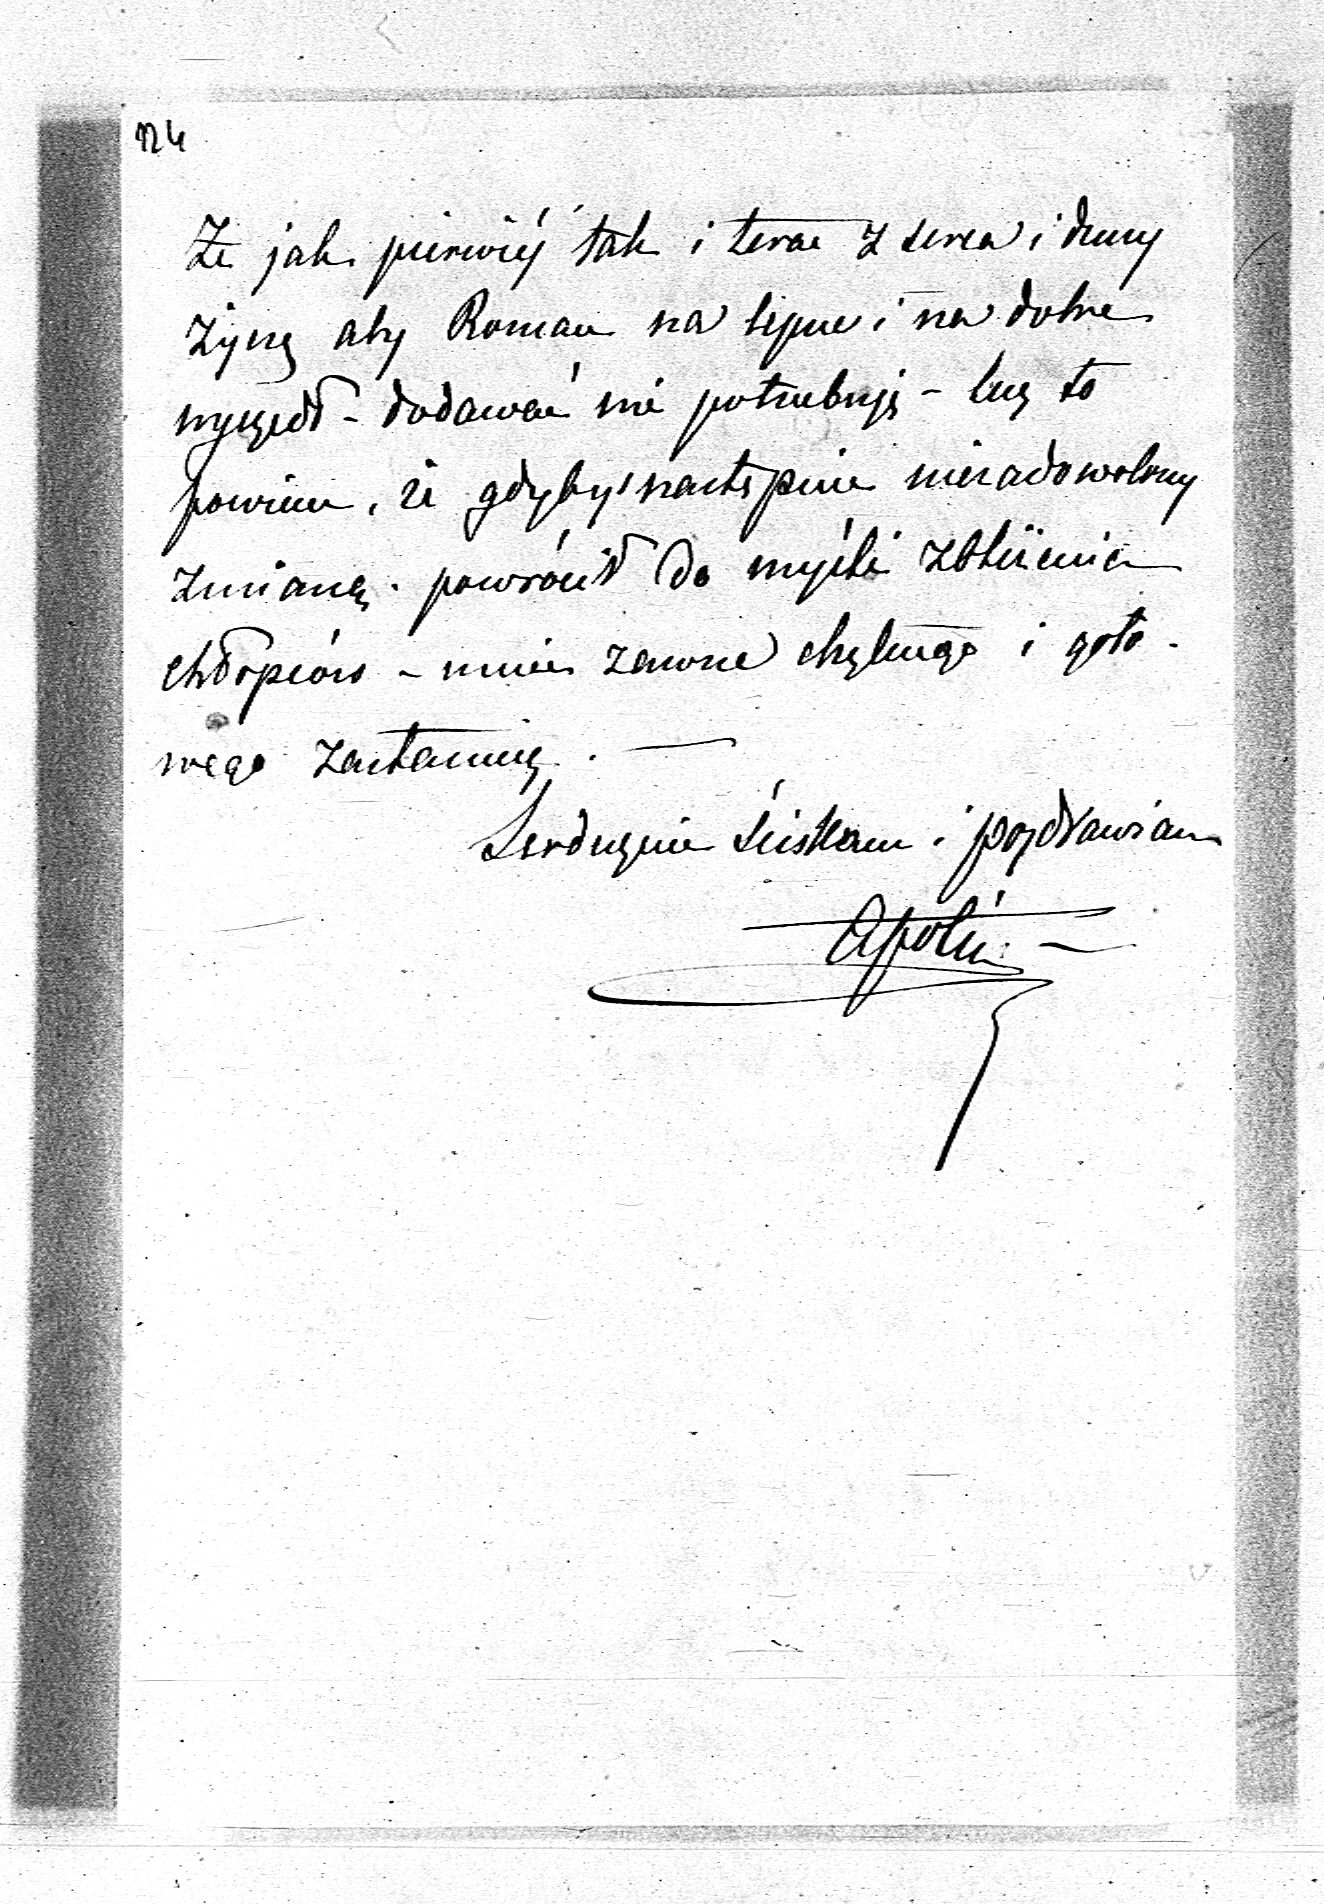 124
Że jak pierwiéj tak i teraz z serca i duszy
życzę aby Roman na lepsze i na dobre
wyszedł - dodawać nie potrzebuję - lecz to
powiem, że gdybyś następnie niezadowolony
zmianą. powrócił do myśli zbliżenia
chłopców - mnie zawsze chętnego i goto-
wego zastaniesz. —
Serdecznie ściskam i pozdrawiam
Apolin. —